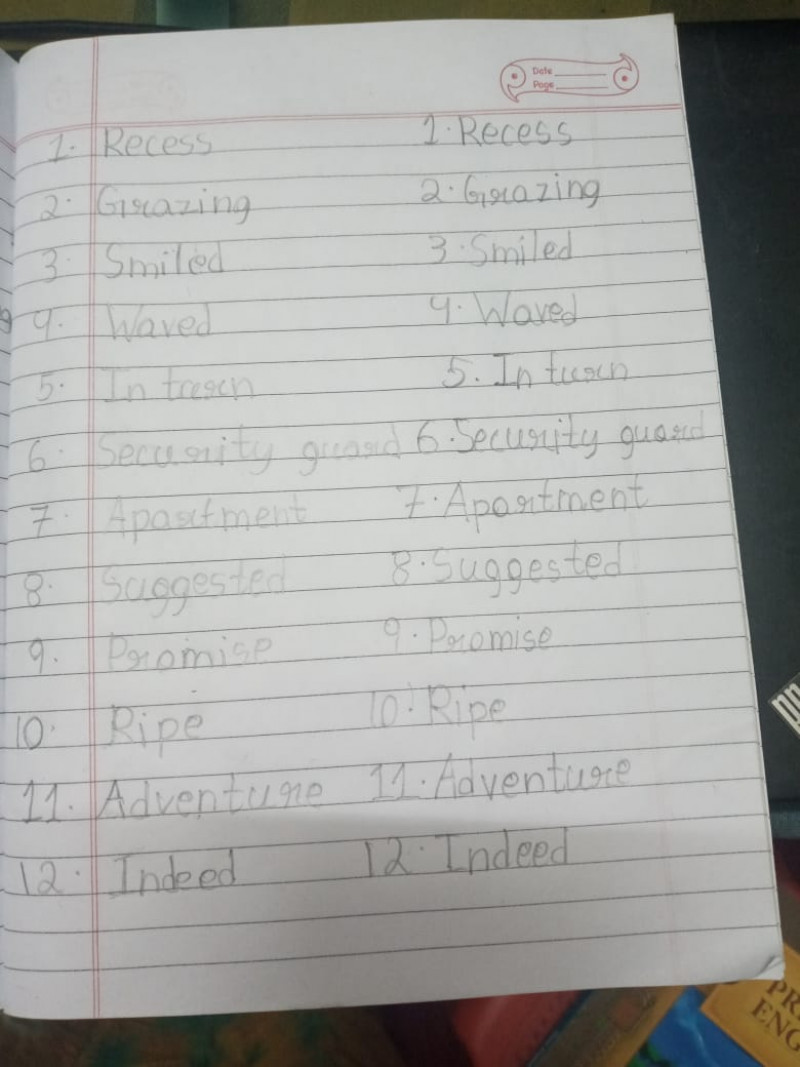 Date
Page
1. Recess 1. Recess
2. Grazing 2. Grazing
3. Smiled 3. Smiled
4. Waved 4. Waved
5. In trern 5. In turn
6. Security guard 6. Security guard
7. Apartment 7. Apartment
8. Suggested 8. Suggested
9. Promise 9. Promise
10. Ripe 10. Ripe
11. Adventure 11. Adventure
12. Indeed 12. Indeed